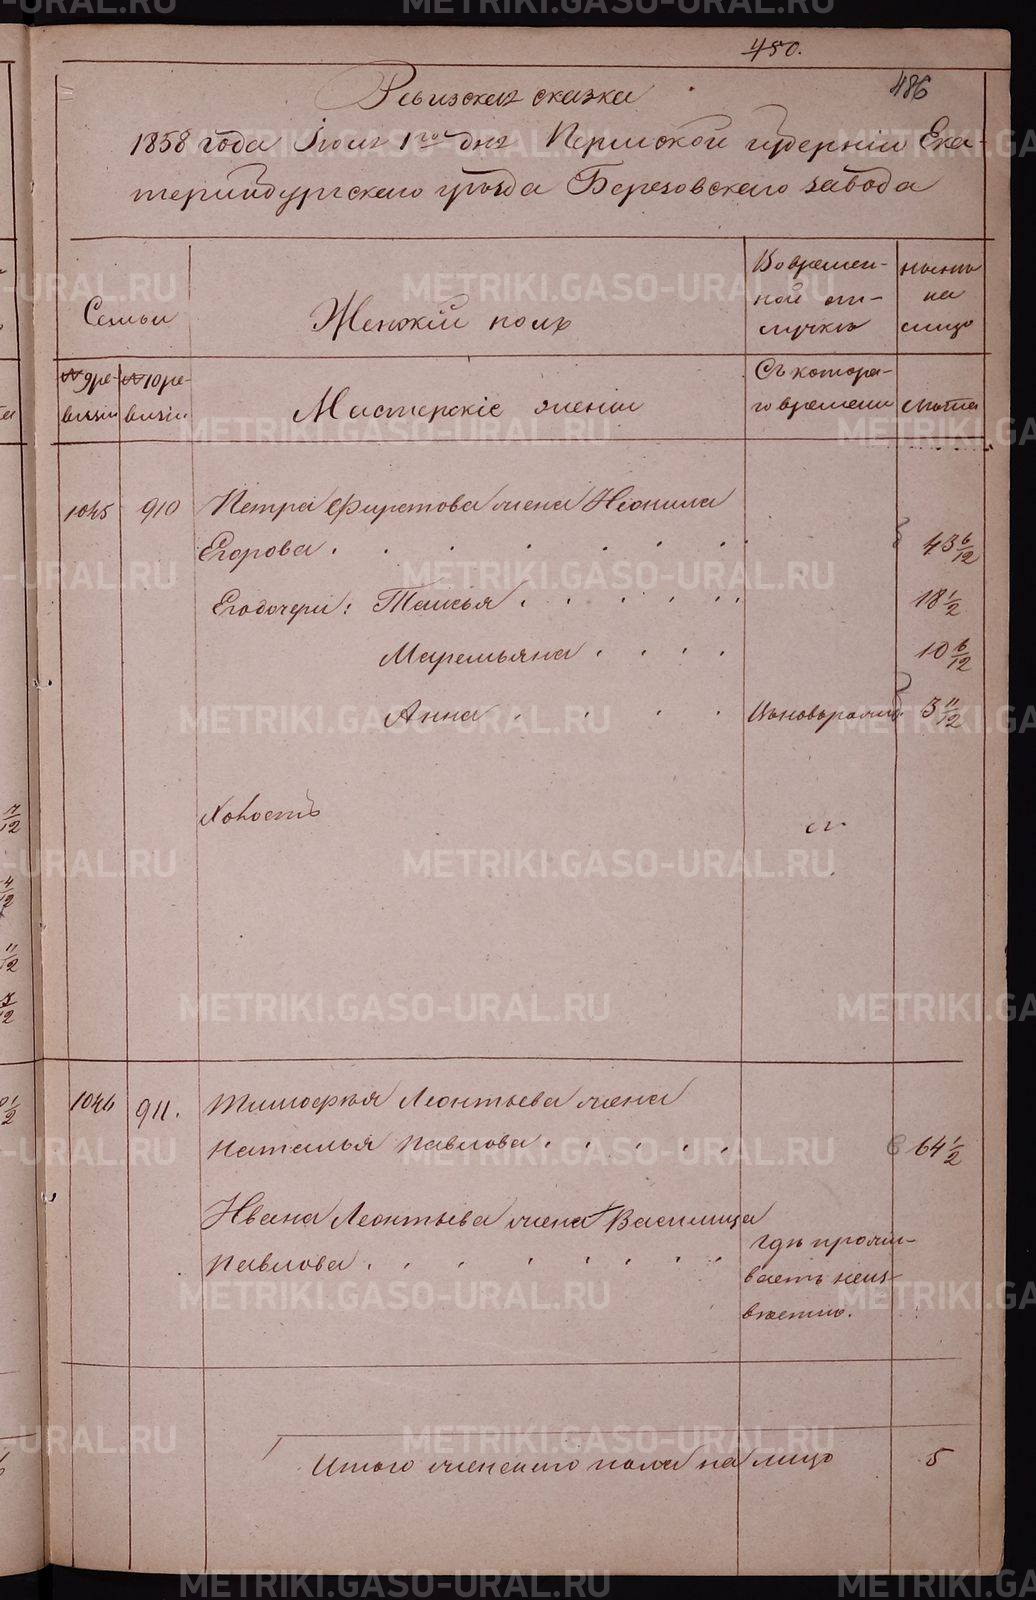 450.
486
Ревизская сказка
1858 года Июня 1го дня Пермской губернiи Ека-
теринбургскаго уезда Березовскаго завода
Семьи
Женскiй полъ
Во времен-
ной от-
лучкѣ
ныѣ
на
лицо
№ 9 ре-
визiи
№ 10 ре-
визiи
Мастерскiе жены
Съ которa-
го времени
лѣта
1045 910 Петра Филатова жена Неонила
Егорова . . . . . . . . 43 6/12
Его дочери: Таисья . . . . . . 18 1/2
Маремьяна . . . . 10 6/12
Анна . . . . Вновьрожд. 3 11/12
Холостъ
1046 911. Тимофѣя Леонтьева жена
Наталья Павлова . . . . . 64 1/2
Ивана Леонтьева жена Василиса
Павлова . . . . . . . .
гдѣ прожи-
ваетъ неиз-
вѣстно.
Итого женскаго пола на лицо 5
METRIKI.GASO-URAL.RU